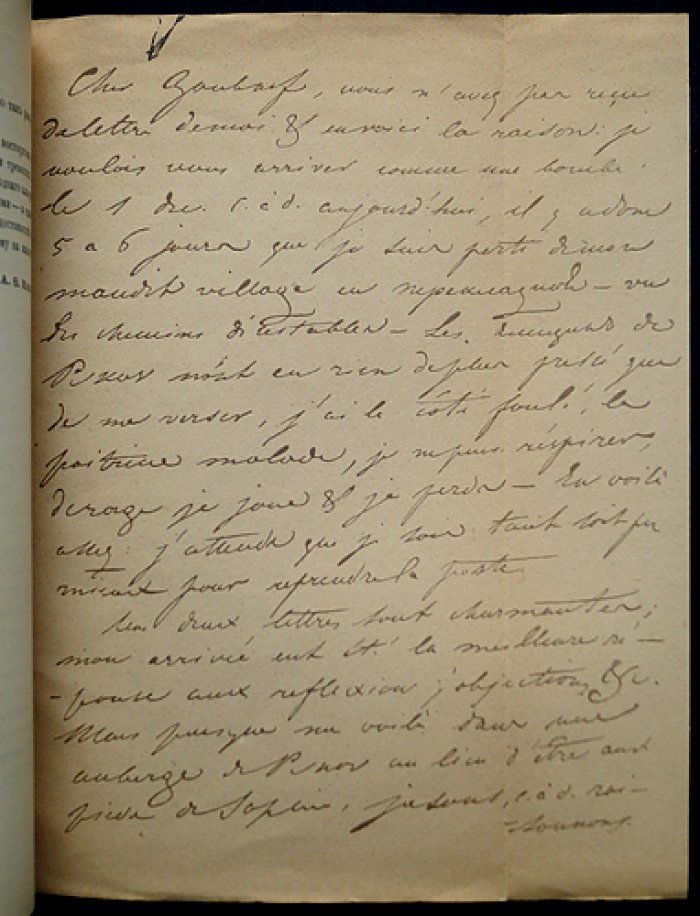 то
восторгом
ужи — а
достоинств
Cher Zoubkof, vous n'avez pas reçu
de lettre de moi & en voici la raison: je
voulois vous arriver comme une bombe
le 1 Dec. c. à d. aujourd'hui, il y a donc
5 a 6 jours que je suis parti de mon
maudit village en
des chemins détestables — Les de
Pskov n'ont en rien de plus pressé que
de me verser, j'ai le côté foulé, la
poitrine malade, je ne puis réspirer,
de rage je joue & je perds — En voilà
assez: j'attends que je sois tant soit peu
mieux pour reprendre la poste
Vos deux lettres sont charmantes;
mon arrivée eut été la meilleure ré-
-ponse aux reflexions, objections, &c.
Mais puisque me voilà dans une
auberge de Pskov au lieu d'être aux
pieds de Sophie, jasons, c. à d. rai-
-sonnons.